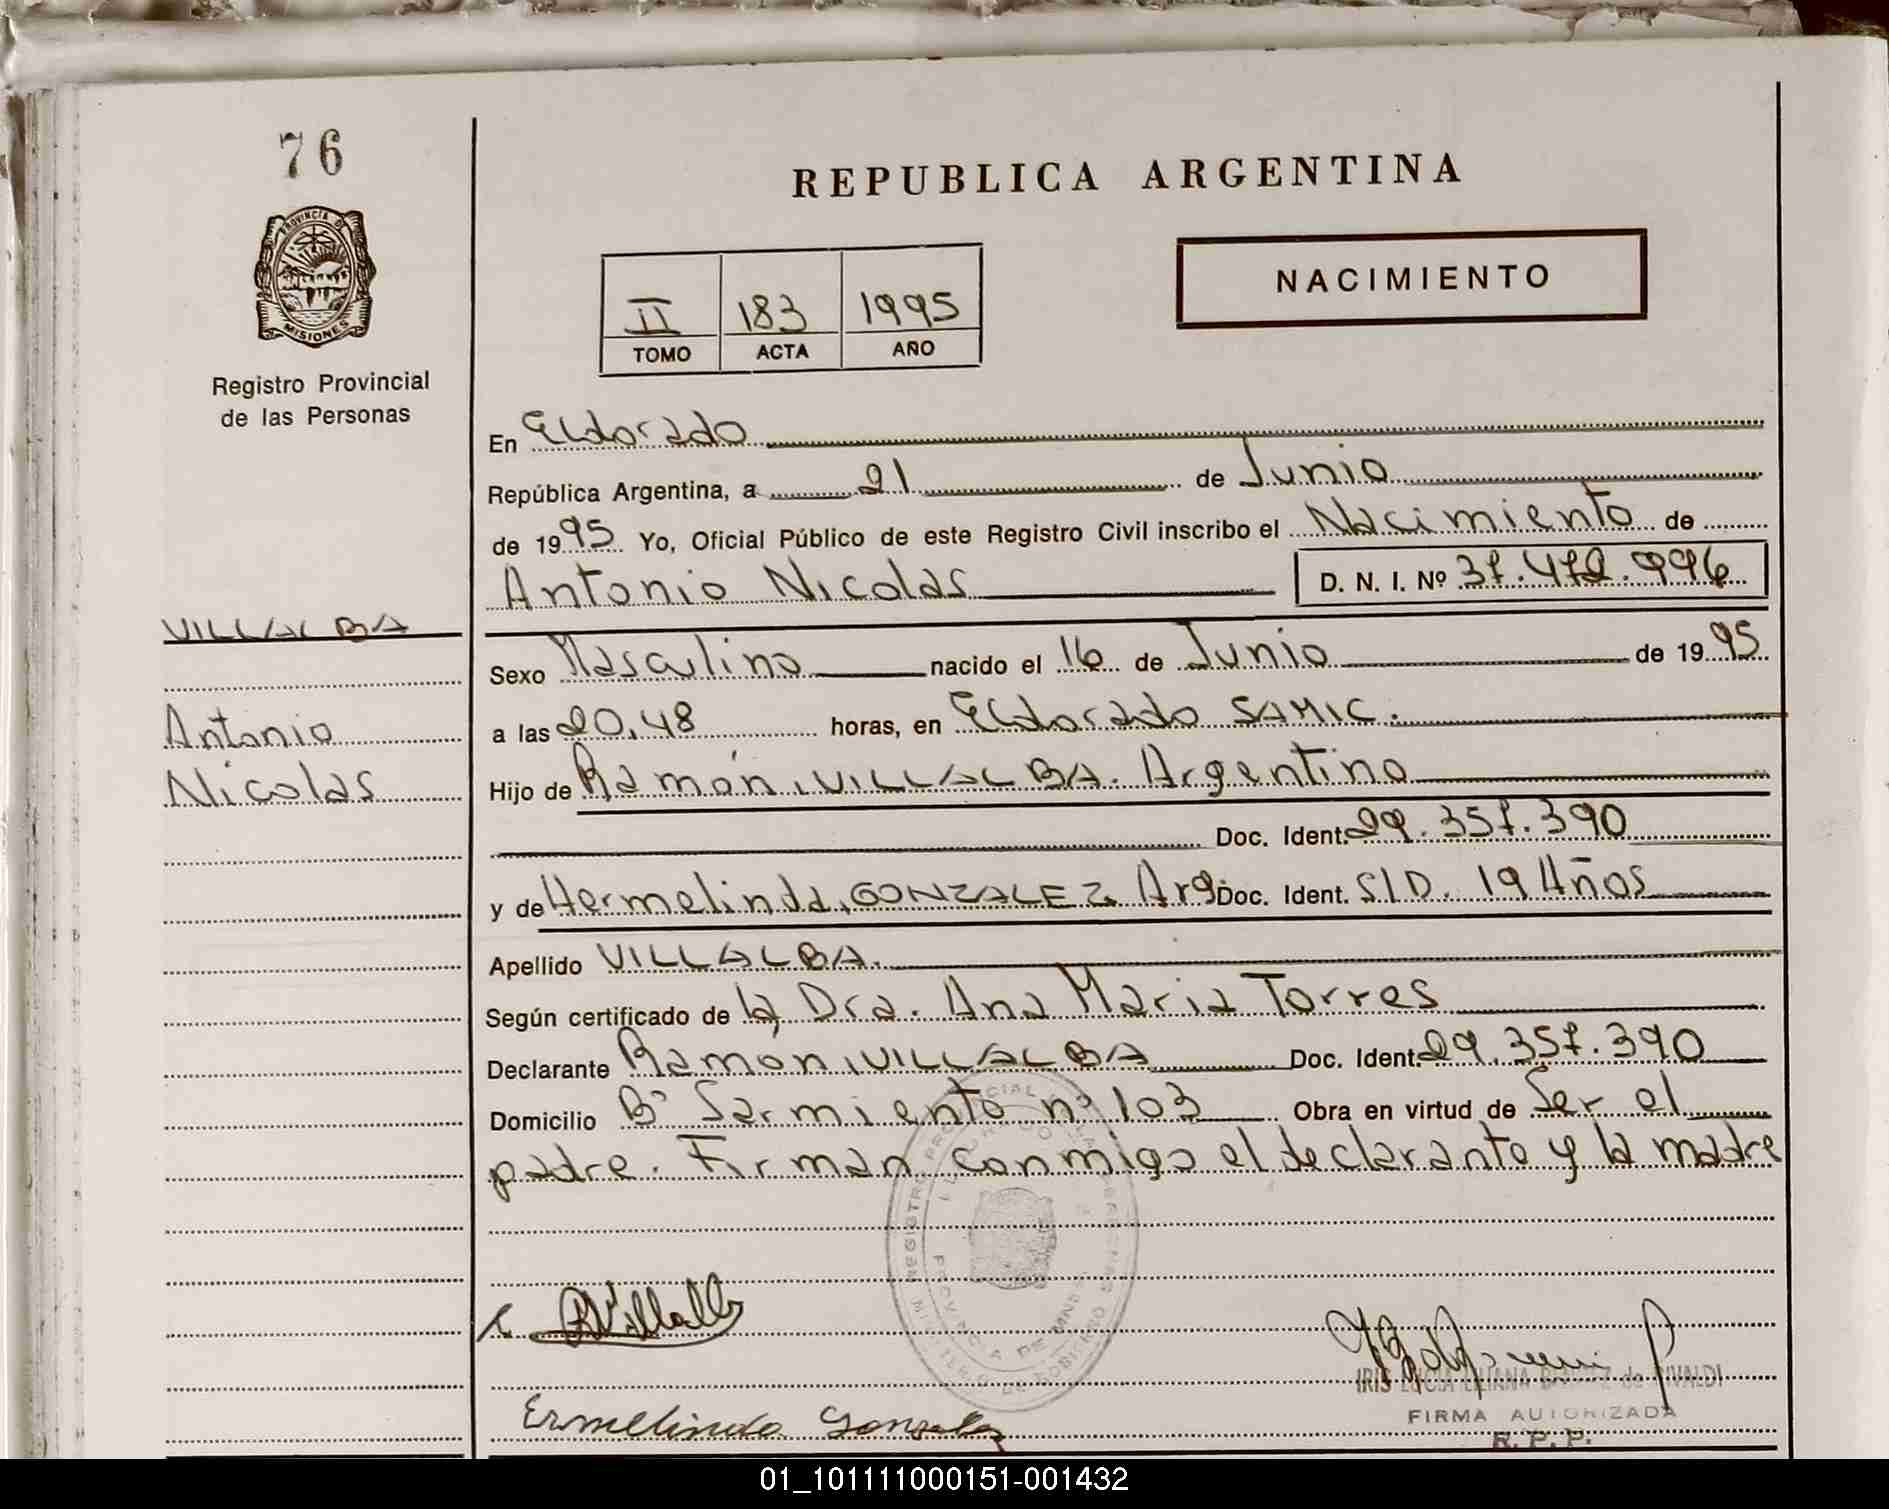 76
PROVINCIA DE
MISIONES
Registro Provincial
de las Personas
REPUBLICA ARGENTINA
II 183 1995
TOMO ACTA AÑO
NACIMIENTO
En Eldorado
República Argentina, a 21 de Junio
de 1995 Yo, Oficial Público de este Registro Civil inscribo el Nacimiento de
Antonio Nicolas D. N. I. Nº
VILLALBA
Antonio
Nicolas
Sexo Masculino nacido el 16 de Junio de 1995
a las 20,48 horas, en Eldorado SAMIC.
Hijo de Ramón, VILLALBA. Argentino
Doc. Ident. 29.357.390
y de Hermelinda, GONZALEZ, Arg. Doc. Ident. S/D. 19 Años
Apellido VILLALBA.
Según certificado de la Dra. Ana Maria Torres
Declarante Ramón, VILLALBA Doc. Ident. 29.357.390
Domicilio Bº Sarmiento nº 103 Obra en virtud de Ser el
padre. Firman conmigo el declarante y la madre
REGISTRO PROVINCIAL DE LAS PERSONAS
PROVINCIA DE MNES.
MINISTERIO DE GOBIERNO
RVillalb
IRIS LUCIA LILIANA de RIVALDI
FIRMA AUTORIZADA
R. P. P.
Ermelinda Gonzalez
01_101111000151-001432